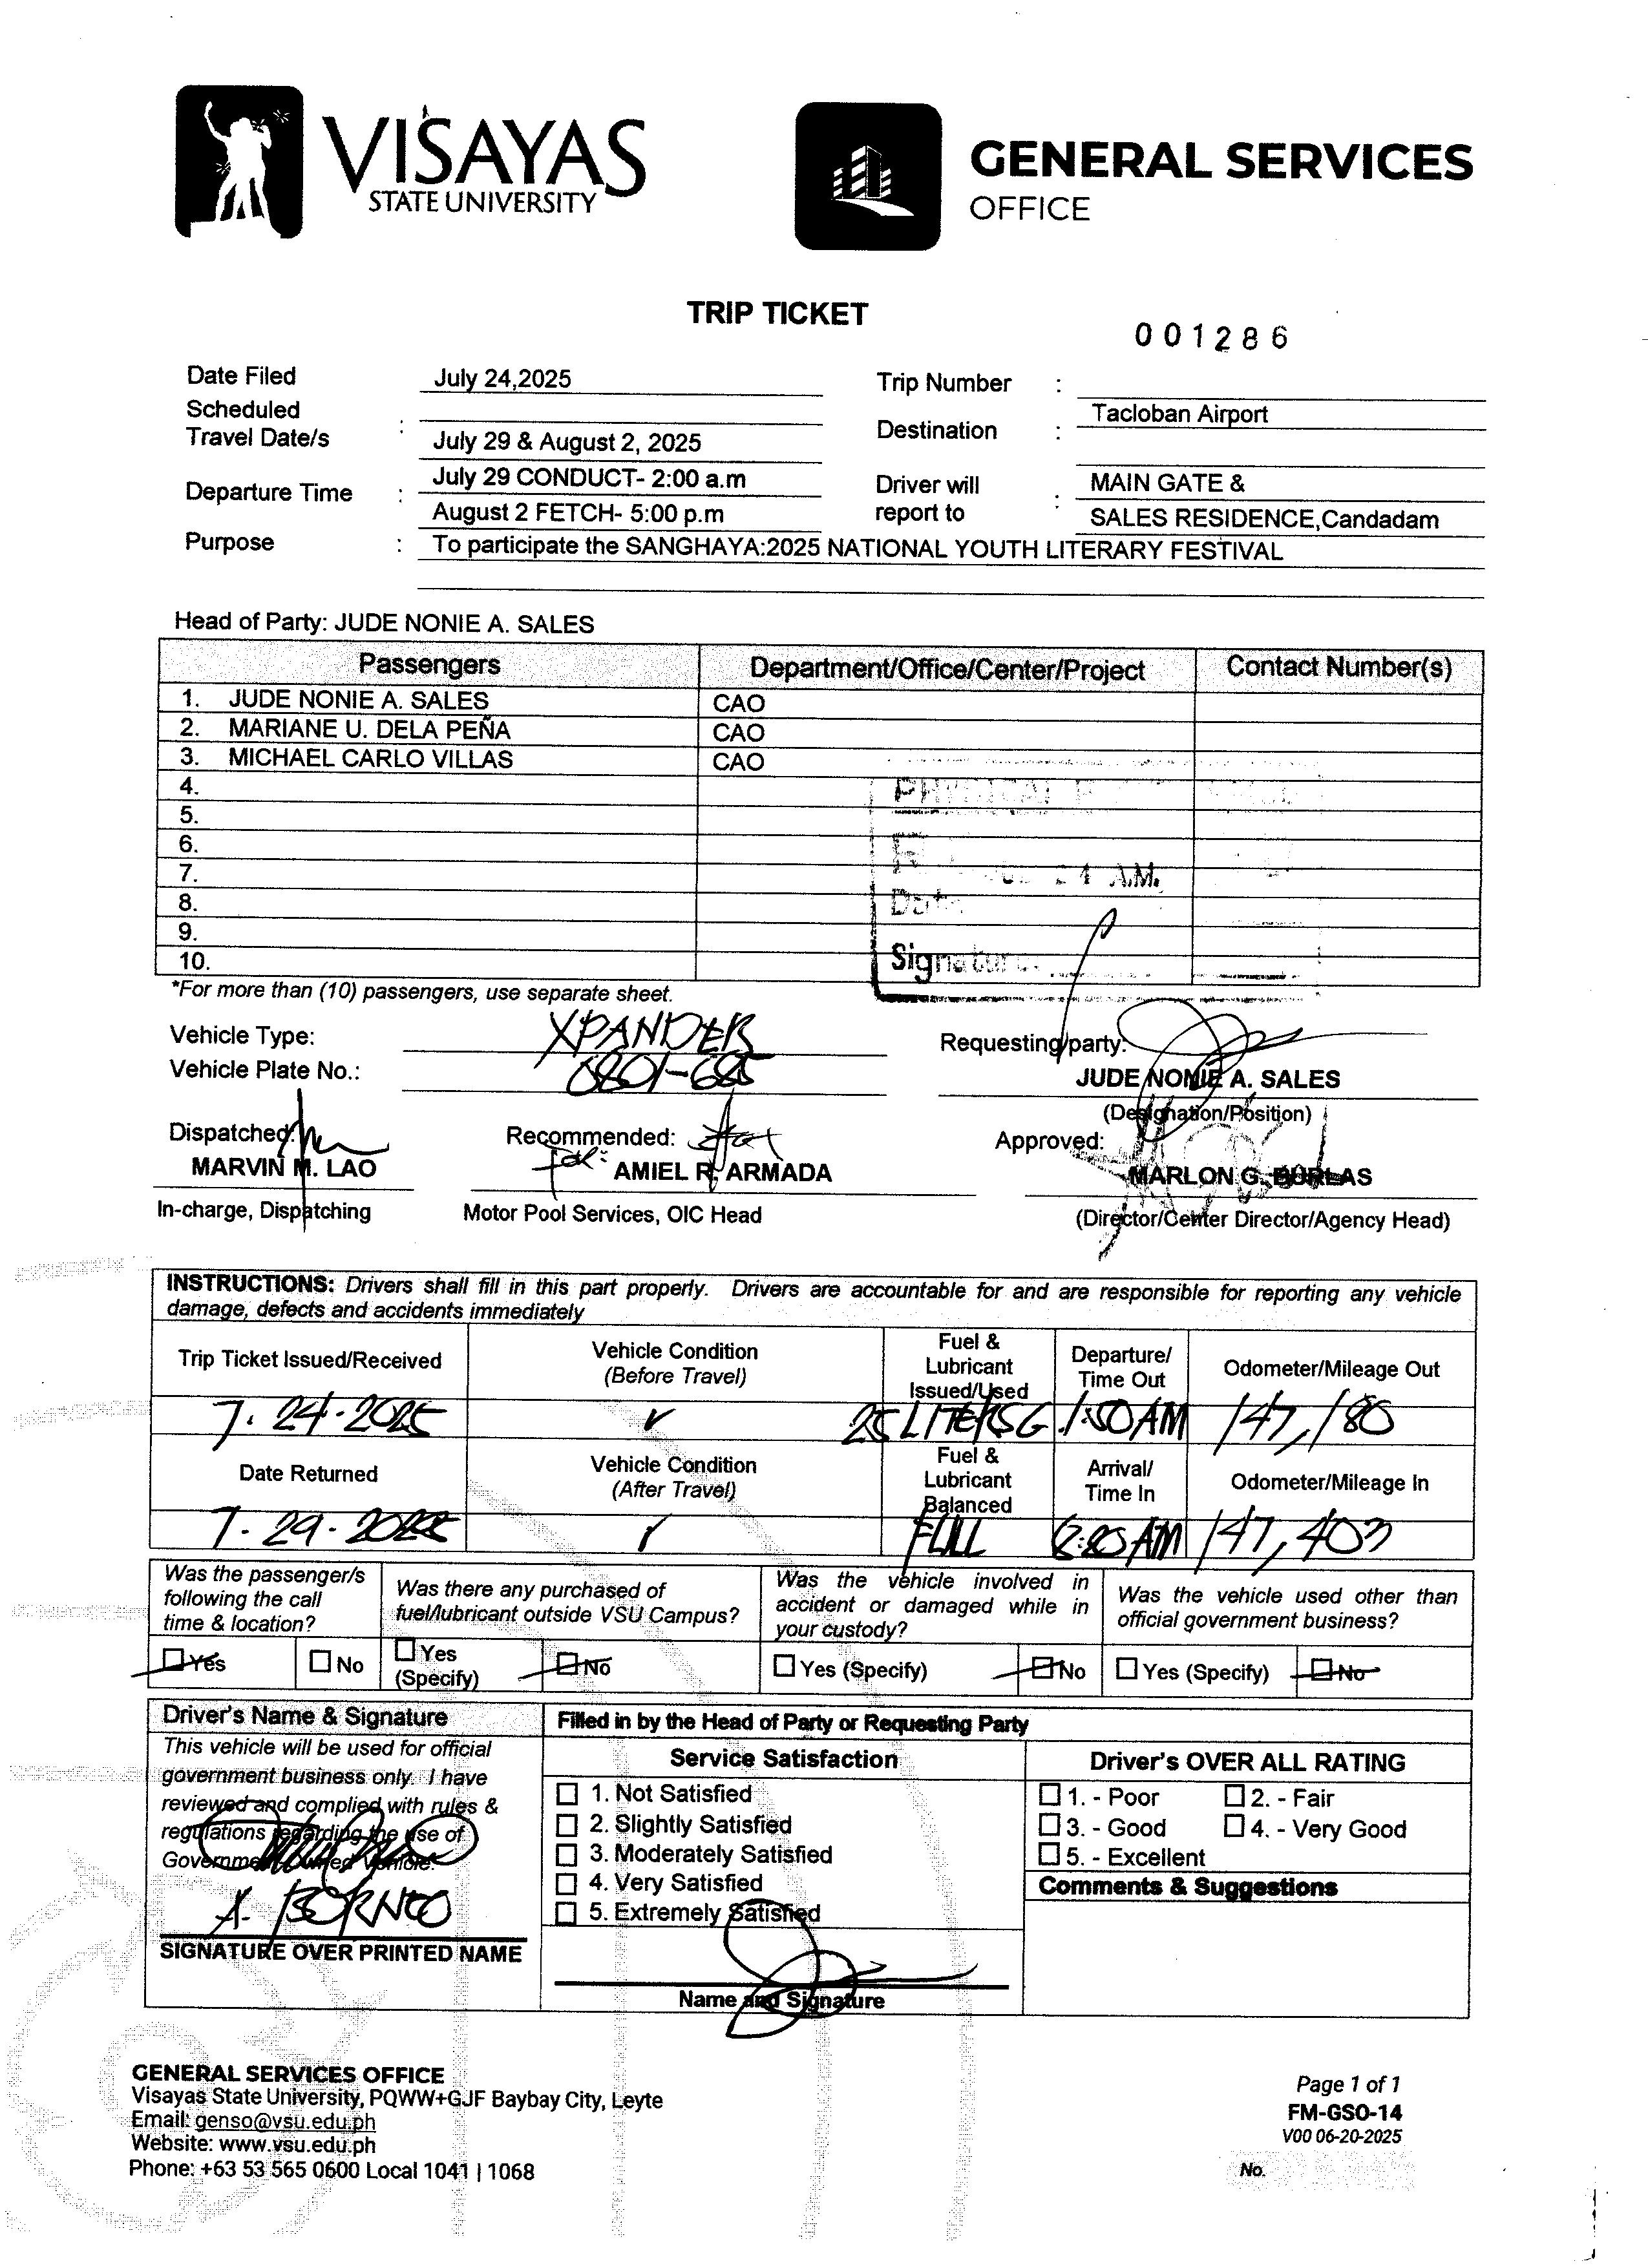 VISAYAS
STATE UNIVERSITY
GENERAL SERVICES
OFFICE
TRIP TICKET
001286
Date Filed July 24,2025
Trip Number :
Scheduled
Travel Date/s : July 29 & August 2, 2025
Destination : Tacloban Airport
Departure Time : July 29 CONDUCT- 2:00 a.m
August 2 FETCH- 5:00 p.m
Driver will
report to : MAIN GATE &
SALES RESIDENCE,Candadam
Purpose : To participate the SANGHAYA:2025 NATIONAL YOUTH LITERARY FESTIVAL
Head of Party: JUDE NONIE A. SALES
Passengers Department/Office/Center/Project Contact Number(s)
1. JUDE NONIE A. SALES CAO
2. MARIANE U. DELA PEÑA CAO
3. MICHAEL CARLO VILLAS CAO
4.
5.
6.
7.
8.
9.
10.
A.M.
Date
Signature
*For more than (10) passengers, use separate sheet.
Vehicle Type: XPANDER
Vehicle Plate No.:
Requesting party:
JUDE NONIE A. SALES
(Designation/Position)
Dispatched:
MARVIN M. LAO
In-charge, Dispatching
Recommended:
for: AMIEL R. ARMADA
Motor Pool Services, OIC Head
Approved:
MARLON G. BURLAS
(Director/Center Director/Agency Head)
INSTRUCTIONS: Drivers shall fill in this part properly. Drivers are accountable for and are responsible for reporting any vehicle
damage, defects and accidents immediately
Trip Ticket Issued/Received
Vehicle Condition
(Before Travel)
Fuel &
Lubricant
Issued/Used
Departure/
Time Out
Odometer/Mileage Out
7. 24. 2025 25 LITERSG 1:50 AM 147,180
Date Returned
Vehicle Condition
(After Travel)
Fuel &
Lubricant
Balanced
Arrival/
Time In
Odometer/Mileage In
7. 29. 2025 FULL 8:20 AM 147,403
Was the passenger/s
following the call
time & location?
Was there any purchased of
fuel/lubricant outside VSU Campus?
Was the vehicle involved in
accident or damaged while in
your custody?
Was the vehicle used other than
official government business?
Yes No Yes (Specify) No Yes (Specify) No Yes (Specify) No
Driver's Name & Signature
This vehicle will be used for official
government business only. I have
reviewed and complied with rules &
regulations regarding the use of
Government Owned Vehicle.
A. BORNEO
SIGNATURE OVER PRINTED NAME
Filled in by the Head of Party or Requesting Party
Service Satisfaction
1. Not Satisfied
2. Slightly Satisfied
3. Moderately Satisfied
4. Very Satisfied
5. Extremely Satisfied
Name and Signature
Driver's OVER ALL RATING
1. - Poor 2. - Fair
3. - Good 4. - Very Good
5. - Excellent
Comments & Suggestions
GENERAL SERVICES OFFICE
Visayas State University, PQWW+GJF Baybay City, Leyte
Email: genso@vsu.edu.ph
Website: www.vsu.edu.ph
Phone: +63 53 565 0600 Local 1041 | 1068
Page 1 of 1
FM-GSO-14
V00 06-20-2025
No.